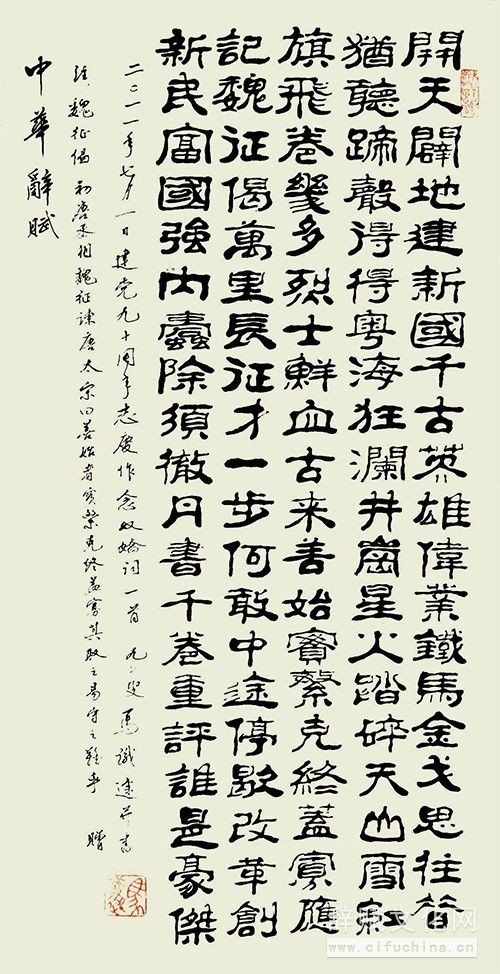 開天闢地建新國千古英雄偉業鐵馬金戈思往昔
猶聽蹄聲得得粵海狂瀾井崗星火踏碎天山雪紅
旗飛卷幾多烈士鮮血古来善始實繁克終蓋寡應
記魏征偈萬里長征才一步何敢中途停歇改革創
新民富國強内蠹除須徹丹書千卷重評誰是豪傑
二〇一一年七月一日建党九十周年志慶作念奴嬌詞一首 九七叟 馬識途并書
註：魏征偈 初唐丞相魏征諫唐太宗曰善始者實繁克終蓋寡其取之易守之難乎 贈
中華辭賦
www.cifuchina.cn